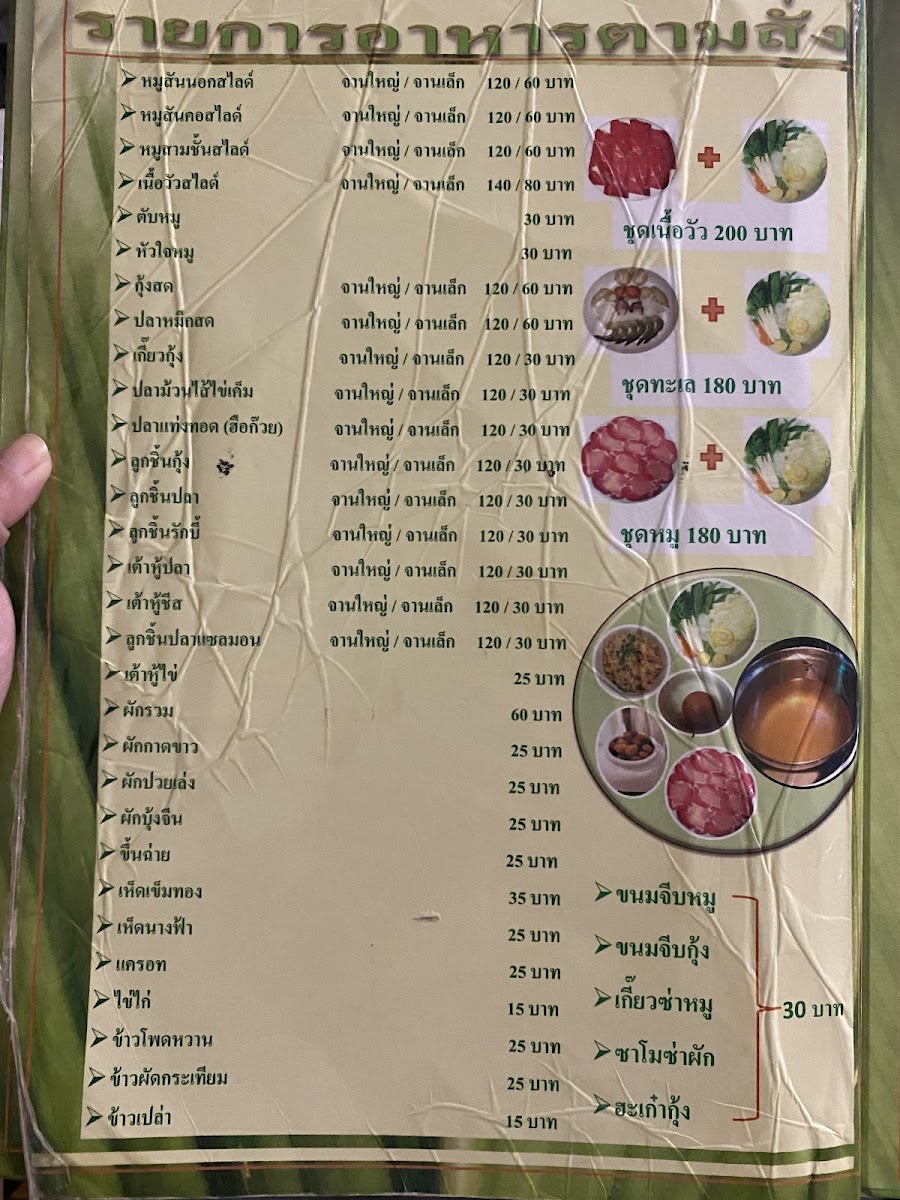 รายการอาหารตามสั่ง
หมูสันนอกสไลด์ จานใหญ่ / จานเล็ก 120 / 60 บาท
หมูสันคอสไลด์ จานใหญ่ / จานเล็ก 120 / 60 บาท
หมูสามชั้นสไลด์ จานใหญ่ / จานเล็ก 120 / 60 บาท
เนื้อวัวสไลด์ จานใหญ่ / จานเล็ก 140 / 80 บาท
ตับหมู 30 บาท
หัวใจหมู 30 บาท
กุ้งสด จานใหญ่ / จานเล็ก 120 / 60 บาท
ปลาหมึกสด จานใหญ่ / จานเล็ก 120 / 60 บาท
เกี๊ยวกุ้ง จานใหญ่ / จานเล็ก 120 / 30 บาท
ปลาม้วนไส้ไข่เค็ม จานใหญ่ / จานเล็ก 120 / 30 บาท
ปลาแท่งทอด (ฮือก๊วย) จานใหญ่ / จานเล็ก 120 / 30 บาท
ลูกชิ้นกุ้ง จานใหญ่ / จานเล็ก 120 / 30 บาท
ลูกชิ้นปลา จานใหญ่ / จานเล็ก 120 / 30 บาท
ลูกชิ้นรักบี้ จานใหญ่ / จานเล็ก 120 / 30 บาท
เต้าหู้ปลา จานใหญ่ / จานเล็ก 120 / 30 บาท
เต้าหู้ชีส จานใหญ่ / จานเล็ก 120 / 30 บาท
ลูกชิ้นปลาแซลมอน จานใหญ่ / จานเล็ก 120 / 30 บาท
เต้าหู้ไข่ 25 บาท
ผักรวม 60 บาท
ผักกาดขาว 25 บาท
ผักปวยเล่ง 25 บาท
ผักบุ้งจีน 25 บาท
ขึ้นฉ่าย 25 บาท
เห็ดเข็มทอง 35 บาท
เห็ดนางฟ้า 25 บาท
แครอท 25 บาท
ไข่ไก่ 15 บาท
ข้าวโพดหวาน 25 บาท
ข้าวผัดกระเทียม 25 บาท
ข้าวเปล่า 15 บาท
ชุดเนื้อวัว 200 บาท
ชุดทะเล 180 บาท
ชุดหมู 180 บาท
ขนมจีบหมู
ขนมจีบกุ้ง
เกี๊ยวซ่าหมู
30 บาท
ซาโมซ่าผัก
ฮะเก๋ากุ้ง